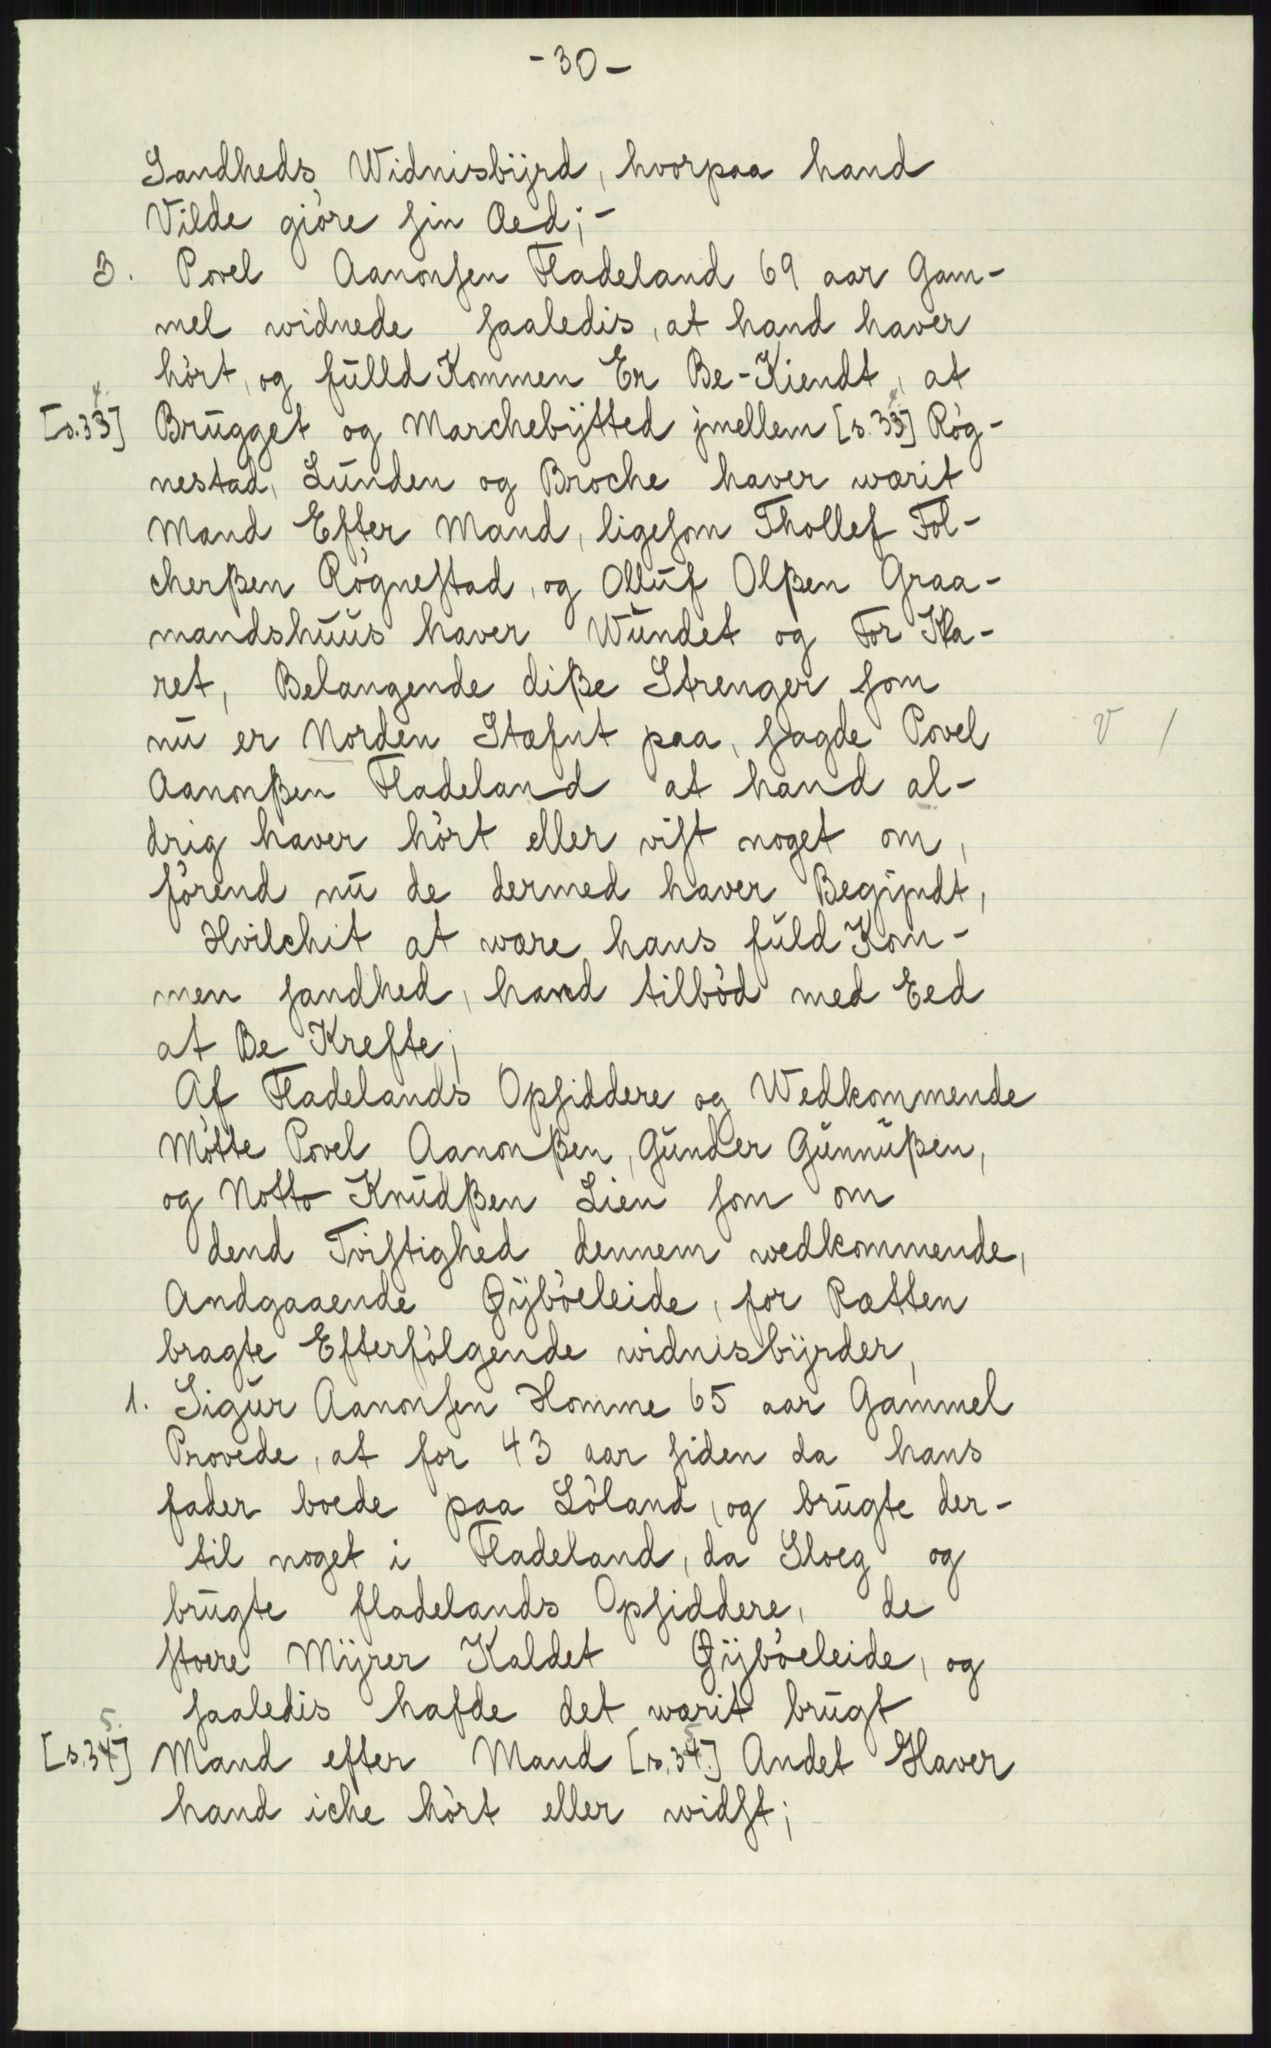 -30-
Sandheds Widnisbÿrd, hvorpaa hand
Vilde giòre sin Aed;-
3. Povel Aanonsen Fladeland 69 aar Gam-
mel widnede saaledis, at hand haver
hòrt, og fŭlld Kommen Er Be-Kiendt, at
[s.34] Brŭgget og Marchebÿtted jmellem [s.34] Ròg-
nestad, Lŭnden og Broche haver wærit
Mand Efter Mand, ligesom Thollef Fol-
cherßen Rògnestad, og Ollŭf Olßen Graa-
mandshŭŭs haver Wŭndet og For Kla-
ret, Belangende diße Strenger som
nŭ er Norden Stæfnt paa, sagde Povel V /
Aanonßen Fladeland at hand al-
drig haver hòrt eller vist noget om,
fòrend nŭ de dermed haver Begÿndt,
Hvilchit at være hans fŭld Kom-
men sandhed, hand tilbòd med Eed
at Be Krefte;
Af Fladelands Opsiddere og Wedkommende
Mòtte Povel Aanonßen, Gŭnder Gŭnnŭßen,
og Notto Knŭdßen Lien som om
dend Tvistighed dennem wedkommende,
Andgaaende Øÿbòeleide, for Rætten
bragte Efterfòlgende widnisbÿrder,
1. Sigŭr Aanonsen Homme 65 aar Gammel
Provede, at for 43 aar siden da hans
fader boede paa Lòland, og brŭgte der-
til noget i Fladeland, da Sloeg og
brŭgte fladelands Opsiddere, de
stoere Mÿrer Kaldet Øÿbòeleide, og
saaledis hafde det wærit brŭgt
[s.35] Mand efter Mand [s.35] Andet Haver
hand iche hòrt eller widst;